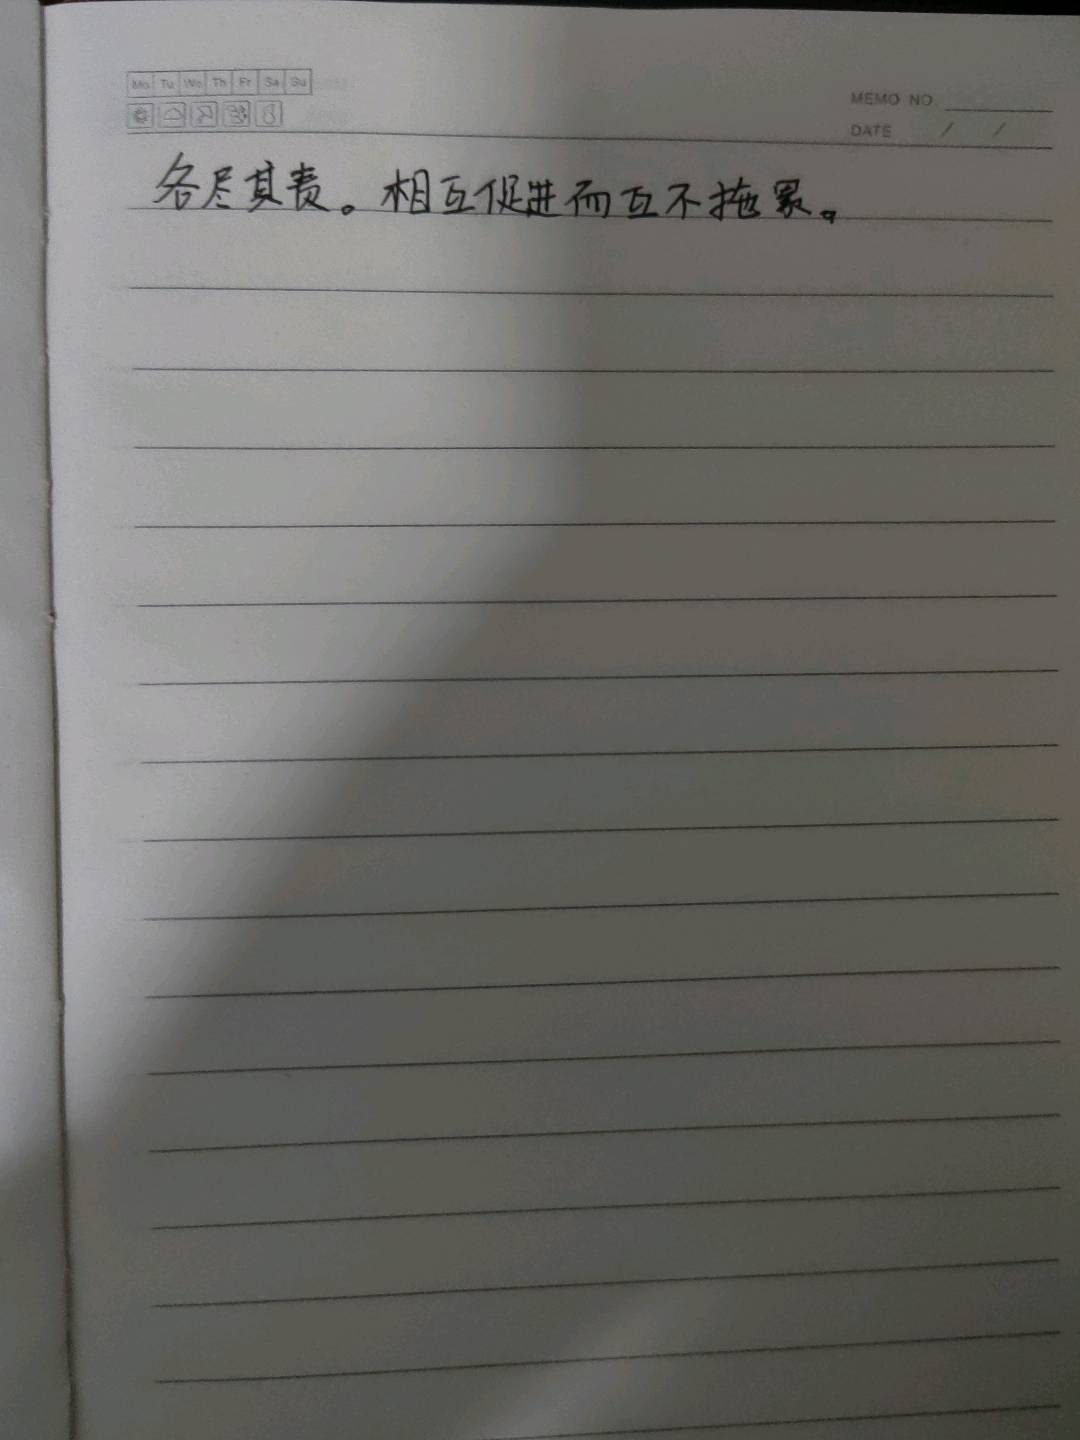 Mo Tu We Th Fr Sa Su
MEMO NO
DATE / /
各尽其责。相互促进而互不拖累。